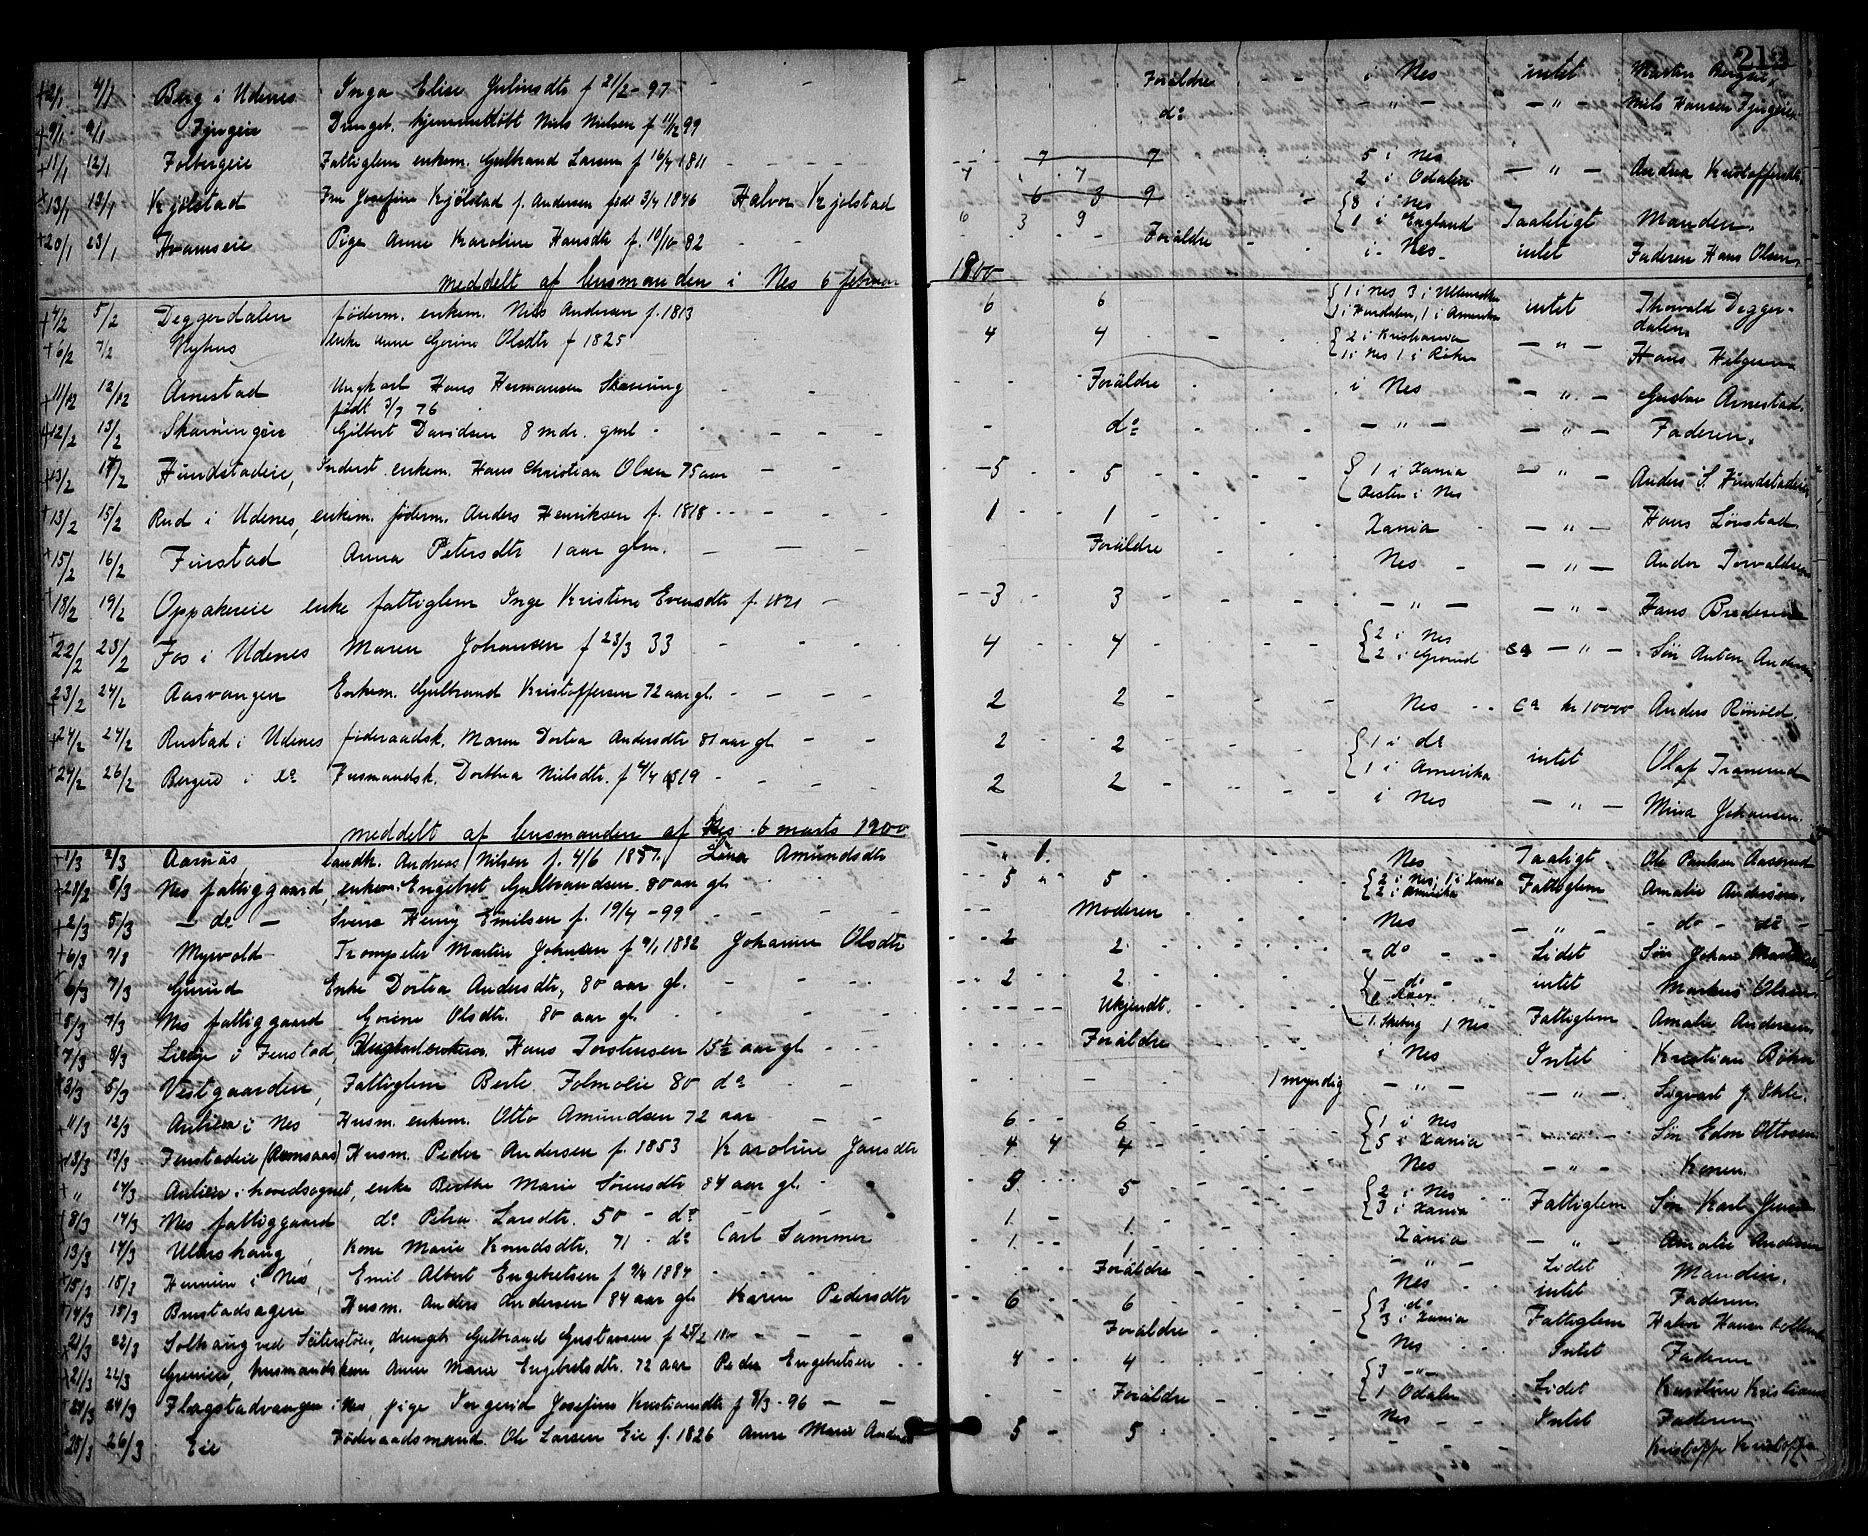 213
+2/1 4/1 Berg i Udenes Inga Elise Juliusdtr f 21/2-97 - - - Forældre - - i Nes intet Martin Bergeie
+9/1 9/1 Fjugeie Drengeb. hjemmedöbt Niels Nielsen f 11/12 99 do - " - - " - Niels Hansen Fjugeie
+11/1 12/1 Folbergeie Fattiglem enkem. Gulbrand Larsen f 16/4 1811 - - - 7 7 5 i Nes
7 7 2 i Odalen - " - Andrea Kristoffersdtr
+13/1 13/1 Kjölstad Fru Josefine Kjölstad f. Andersen födt 3/4 1846 Halvor Kjolstad 6 3 9 8 i Nes
6 3 9 1 i England Taaleligt Manden.
+20/1 23/1 Hvamseie Pige Anne Karoline Hansdtr f. 10/10 82 - - Forældre - i Nes intet Faderen Hans Olsen.
meddelt af lensmanden i Nes 6 februar 1900
+4/2 5/2 Deggerdalen föderm. enkem. Nils Andersen f. 1813 6 6 1 i Nes 3 i Ullensaker
1 i Hurdalen, 1 i Amerika intet Thorvald Deggerdalen
+6/2 7/2 Nyhus enke Anne Gorine Olsdtr f 1825 4 4 2 i Kristiania
1 i Nes 1 i - " - Hans
+11/2 12/2 Arnestad Ungkarl Hans Hermansen Skarning - - Forældre i Nes - " - Gustav Arnestad.
födt 3/7 76
+12/2 13/2 Skarningeie Gilbert Davidsen 8 mdr. gml - do - " - - " - Faderen.
+13/2 17/2 Hundstadeie, Inderst enkem. Hans Christian Olsen 75 aar - - 5 5 1 i Xania
Resten i Nes - " - Anders S. Hundstadeie
+13/2 15/2 Rud i Udenes, enkem. föderm. Anders Henriksen f. 1818 - - 1 - 1 Xania - " - Hans Lörstad.
+15/2 16/2 Finstad Anna Petersdtr 1 aar glm. - - Forældre Nes - - " - Ander Torvaldsen
+18/2 19/2 Oppakereie enke fattiglem Inge Kristine Evensdtr f. 1821 - - 3 3 - " - - " - Hans Bredesen
+22/2 23/2 Fos i Udenes Maren Johansen f 23/3 33 - - 4 - 4 2 i Nes
2 i Grorud ca - " - Sön Anton Andersen
+23/2 24/2 Aasvangen Enkem. Gulbrand Kristoffersen 72 aar gl. - - 2 2 Nes ca kr 10000 Anders
+24/2 24/2 Rustad i Udenes föderaadsk. Maren Dortea Andersdtr 81 aar gl - - 2 2 1 i do
1 i Amerika intet Olaf Tranerud
+24/2 26/2 Bergeie i do Husmandsk. Dorthea Nielsdtr. f 4/4 1819 - - 2 2 i Nes - " - Mina Johansen.
meddelt af lensmanden af Nes 6 marts 1900
+1/3 2/3 Aarnäs landh. Andreas Nilsen f. 4/6 1857. Lina Amundsdtr " 1 Nes Taaligt Ole Paulsen Aaserud
+28/2 5/3 Nes fattiggaard, enkem Engebret Gulbrandsen 80 aar gl. 5 " 5 2 i Nes, 1 i Xania
2 i Amerika Fattiglem Amalie Andersen.
+2/3 5/3 - do - Svend Henry Emilsen f. 19/4 -99 - - Moderen Nes - " - - do - do -
+6/3 7/3 Myrvold Trompeter Martin Johnsen f 9/1 1832 Johanne Olsdtr - 2 2 - do - Lidet Sön Johan
6/3 7/3 Gurud Enke Dortea Andersdtr, 80 aar gl. - - 2 2 - do - intet Markus Olsen.
+5/3 7/3 Nes fattiggaard Gorine Olsdtr. 80 aar gl. - - Ukjendt. 1. Skeberg 1 Nes Fattiglem Amalie Andersen.
7/3 8/3 i Fenstad, Hans Torstensen 15½ aar gl - - Forældre i Nes Intet Kristian Böhn
+3/3 5/3 Vestgaarden, Fattiglem Berte Folmolie 80 do - - 1 myndig - " - - " - Sigvart J.
+11/3 12/3 Aulieie i Nes Husm. enkem. Otto Amundsen 72 aar - - 6 - 6 1 i Nes
5 i Xania - " - Sön Edon Ottosen
+13/3 13/3 Fenstadeie (Aamsaas) Husm. Peder Andersen f. 1853 Karoline Jansdtr 4 4 4 Nes - " - Konen.
+ " 14/3 Aulieie i hovedsognet, enke Berthe Marie Sörensdtr 84 aar gl. - 5 5 2 i Nes
3 i Xania Fattiglem Sön Karl Jensen
+8/3 14/3 Nes fattiggaard do Petra Larsdtr. 50 - do - 1 - 1 Xania - " - Amalie Andersen
13/3 17/3 Ullershaug, Kone Marie Knudsdtr. 71 - do Carl Sammer - 1 1 - " - Lidet Manden.
+15/3 15/3 i Nes, Emil Albert Engebretsen f 9/4 1884 - - Forældre Nes intet Faderen.
+14/3 15/3 Brustadsagen Husm. Anders Andersen 84 aar gl Karen Pedersdtr - 6 6 3 do
3 i Xania Fattiglem Halvor Hansen
21/3 22/3 Solhaug ved Säterstöen, drengeb. Gulbrand Gustavsen f 25/2 1900 - - Forældre Nes Intet Faderen
+21/3 22/3 husmandskone Anne Marie Engebretsdtr. 72 aar Peder Engebretsen - 4 4 3 - " -
1 Odalen Lidet Karoline Kristiansen
24/3 Flagstadvangen i Nes, pige Ingerid Josefine Kristiansdtr f 8/3 -96 - - Forældre Nes Intet Faderen
25/3 26/3 Eie Föderaadsmand. Ole Larsen Eie f. 1826 Anne Marie Andersdtr 5 - 5 Kristoffer Kristoffersen